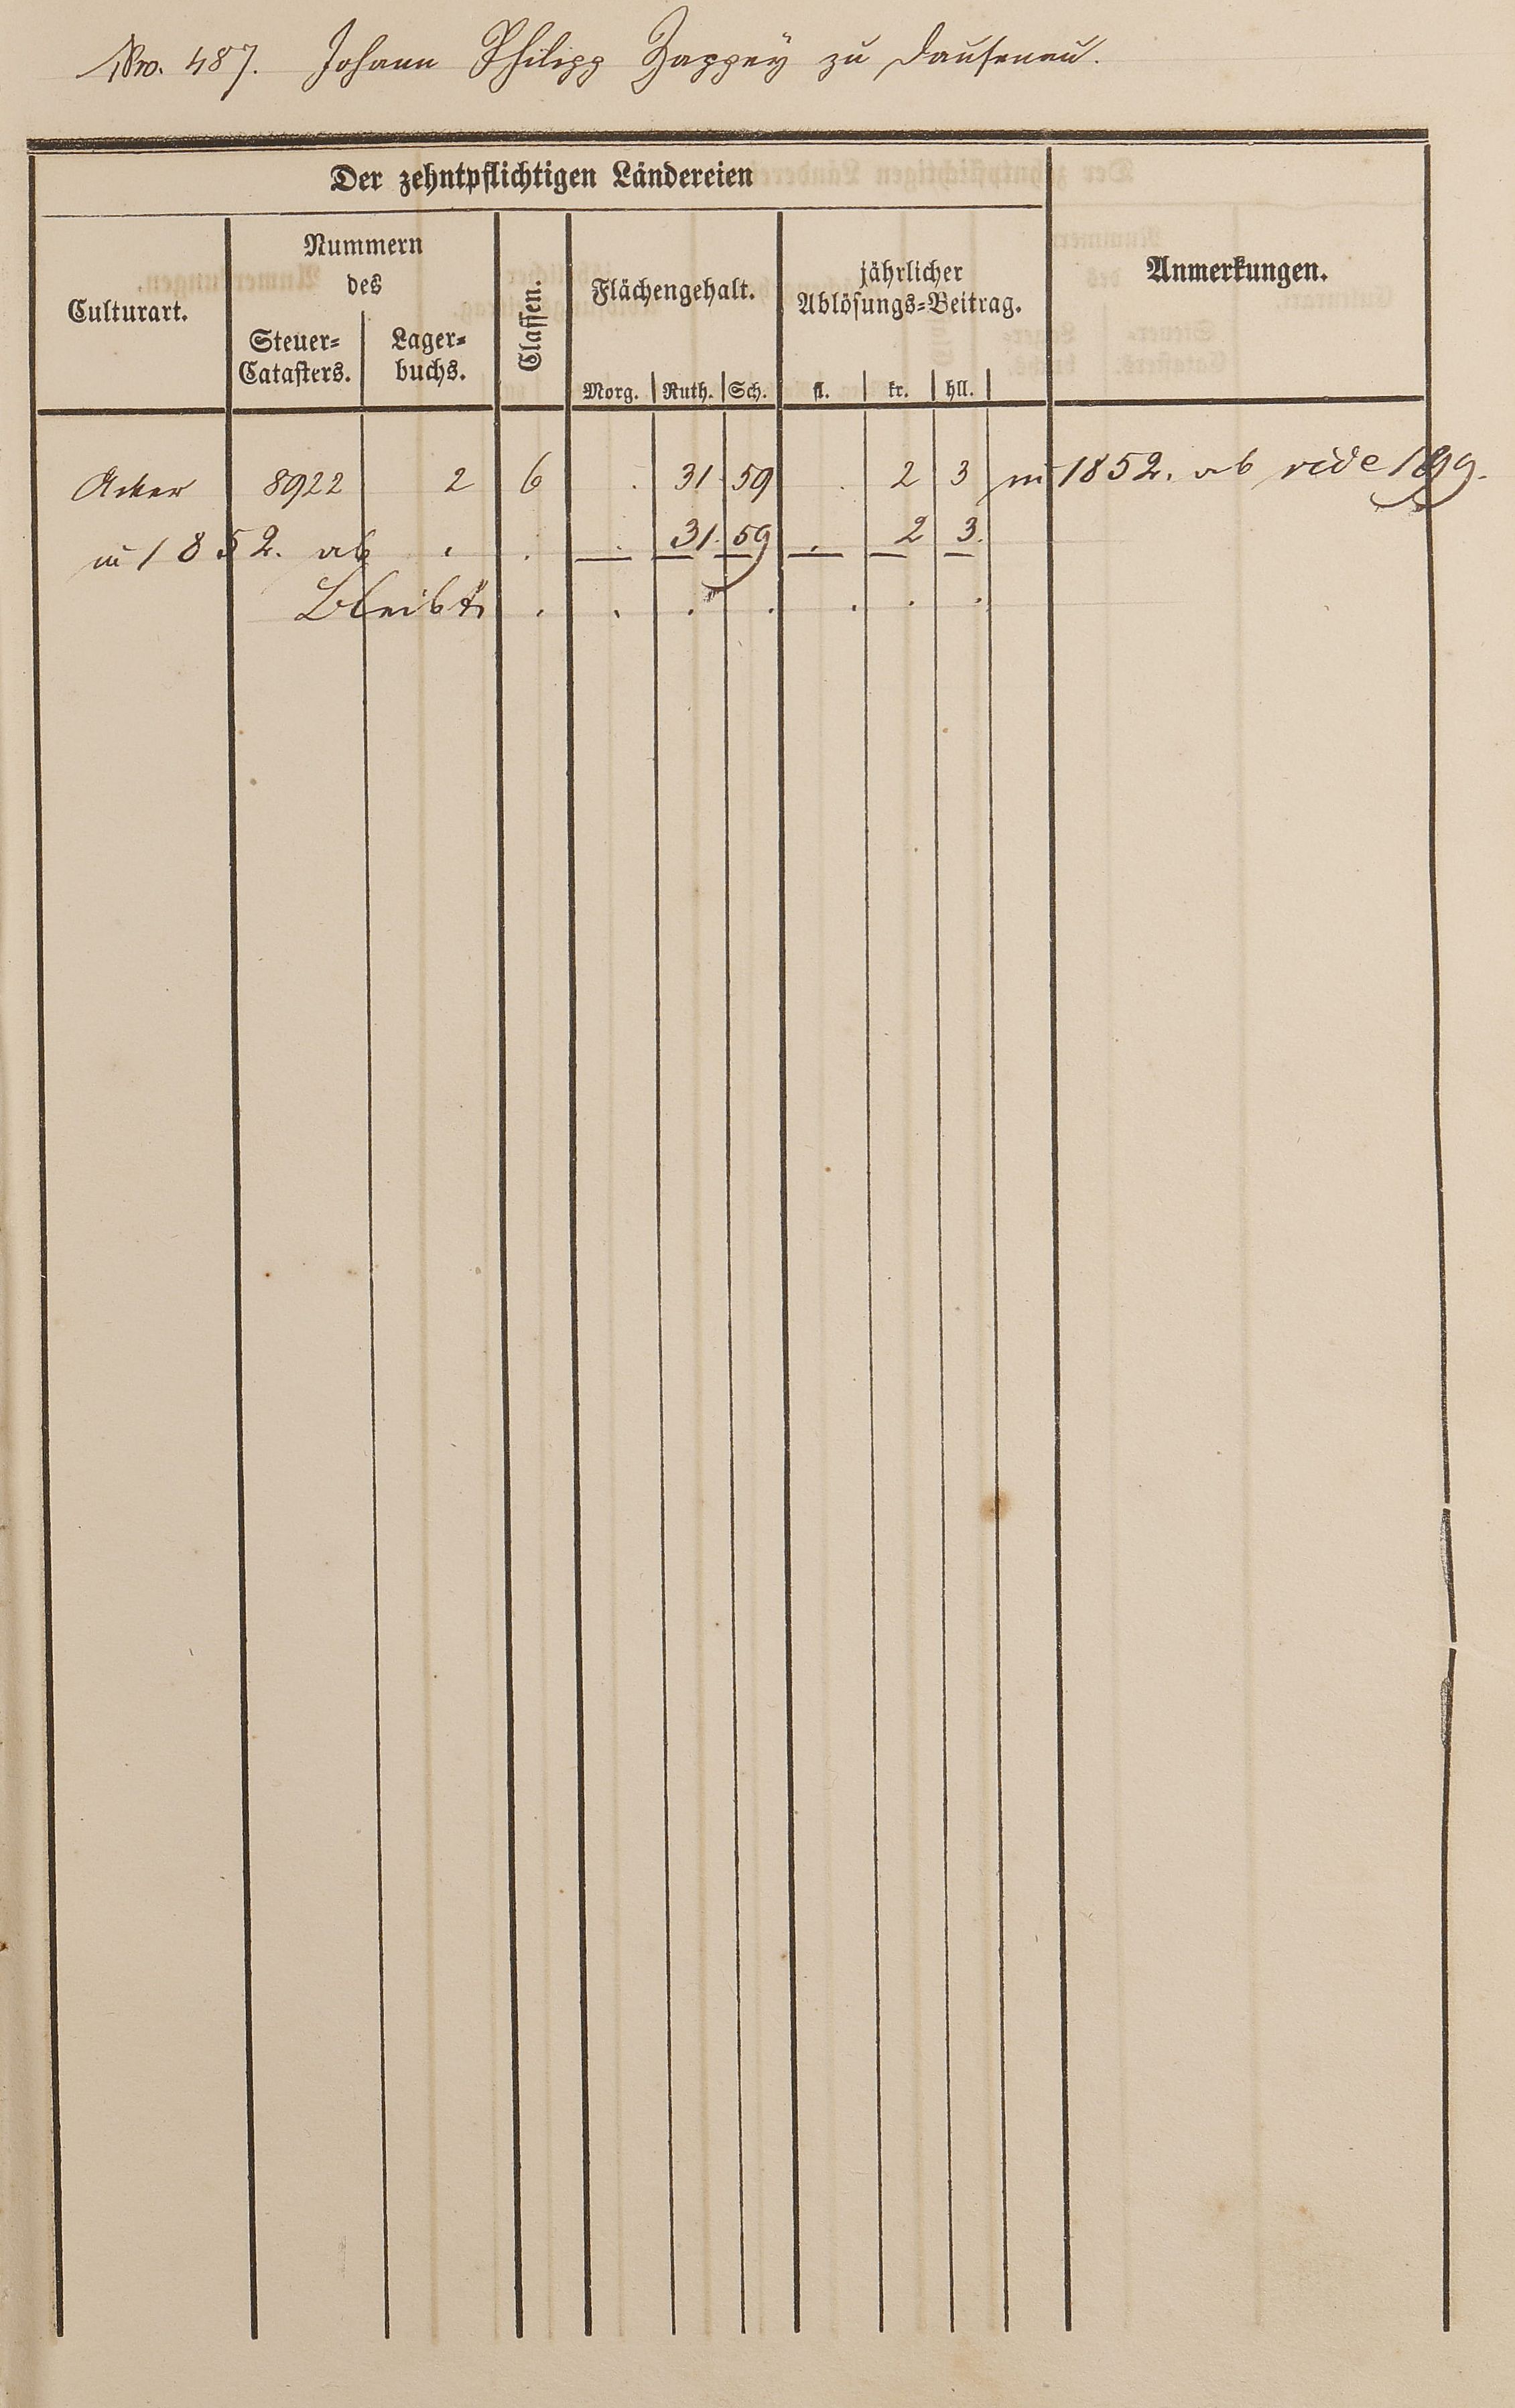 Nro. 487. Johann Philipp Zappeÿ zu Dausenau.
Der zehntpflichtigen Ländereien
Anmerkungen.
Culturart.
Nummern
des
Steuer=
Catasters.
Lager=
buchs.
Classen.
Flächengehalt.
Morg. Ruth. Sch.
jährlicher
Ablösungs=Beitrag.
fl. kr. hll.
Acker 8922 2 6 . 31 59 . 2 3 in 1852. ab vide 199.
in 1852. ab . . . 31. 59 . 2 3.
Bleibt . . . . . . .